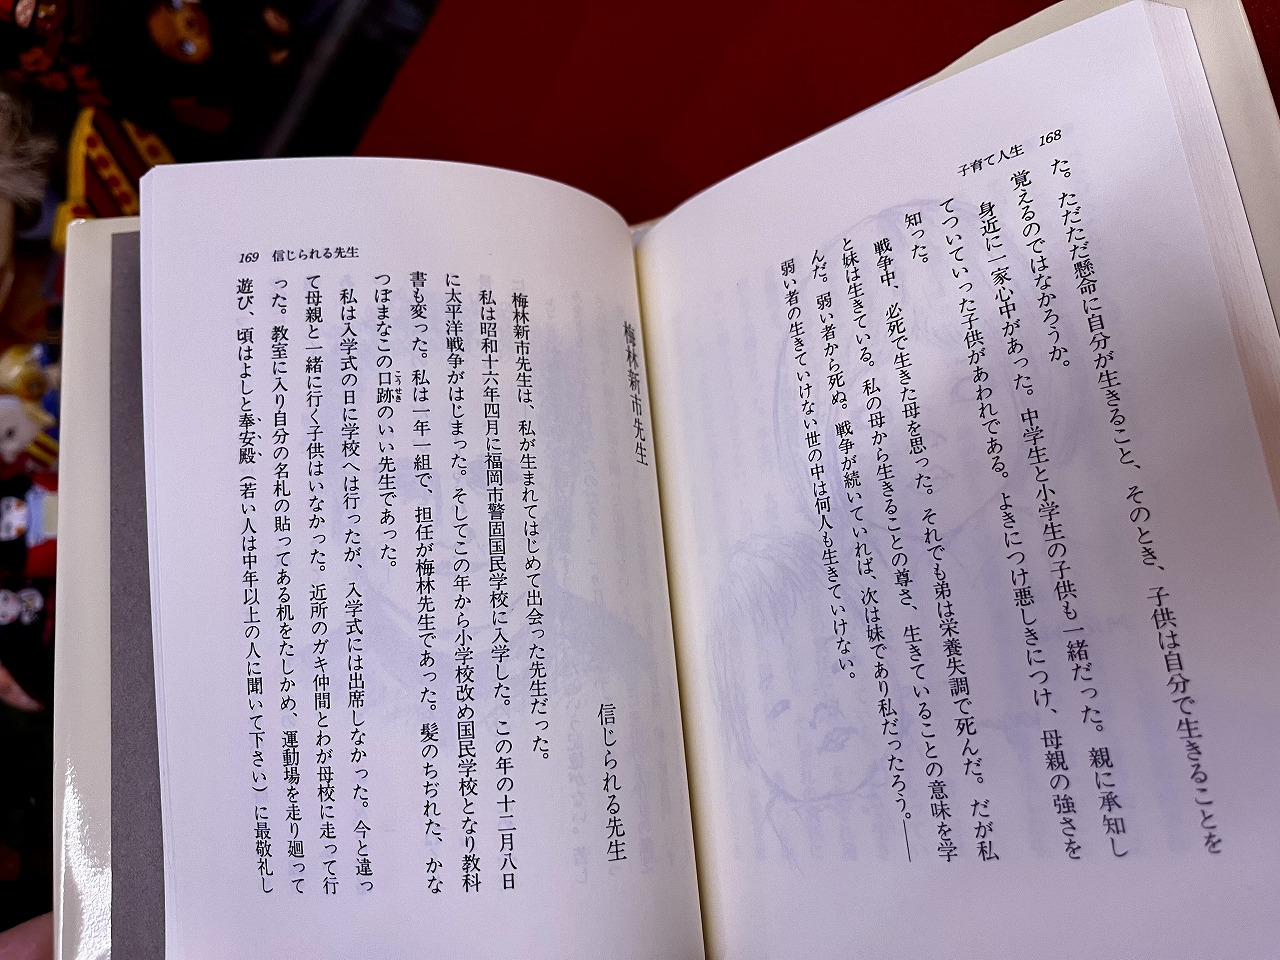 子育て人生 168
た。ただただ懸命に自分が生きること、そのとき、子供は自分で生きることを
覚えるのではなかろうか。
身近に一家心中があった。中学生と小学生の子供も一緒だった。親に承知し
てついていった子供があわれである。よきにつけ悪しきにつけ、母親の強さを
知った。
戦争中、必死で生きた母を思った。それでも弟は栄養失調で死んだ。だが私
と妹は生きている。私の母から生きることの尊さ、生きていることの意味を学
んだ。弱い者から死ぬ。戦争が続いていれば、次は妹であり私だったろう。――
弱い者の生きていけない世の中は何人も生きていけない。
169 信じられる先生
梅林新市先生
信じられる先生
梅林新市先生は、私が生まれてはじめて出会った先生だった。
私は昭和十六年四月に福岡市警固国民学校に入学した。この年の十二月八日
に太平洋戦争がはじまった。そしてこの年から小学校改め国民学校となり教科
書も変った。私は一年一組で、担任が梅林先生であった。髪のちぢれた、かな
つぼまなこの口跡のいい先生であった。
こうせき
私は入学式の日に学校へは行ったが、入学式には出席しなかった。今と違っ
て母親と一緒に行く子供はいなかった。近所のガキ仲間とわが母校に走って行
った。教室に入り自分の名札の貼ってある机をたしかめ、運動場を走り廻って
遊び、頃はよしと奉安殿（若い人は中年以上の人に聞いて下さい）に最敬礼し